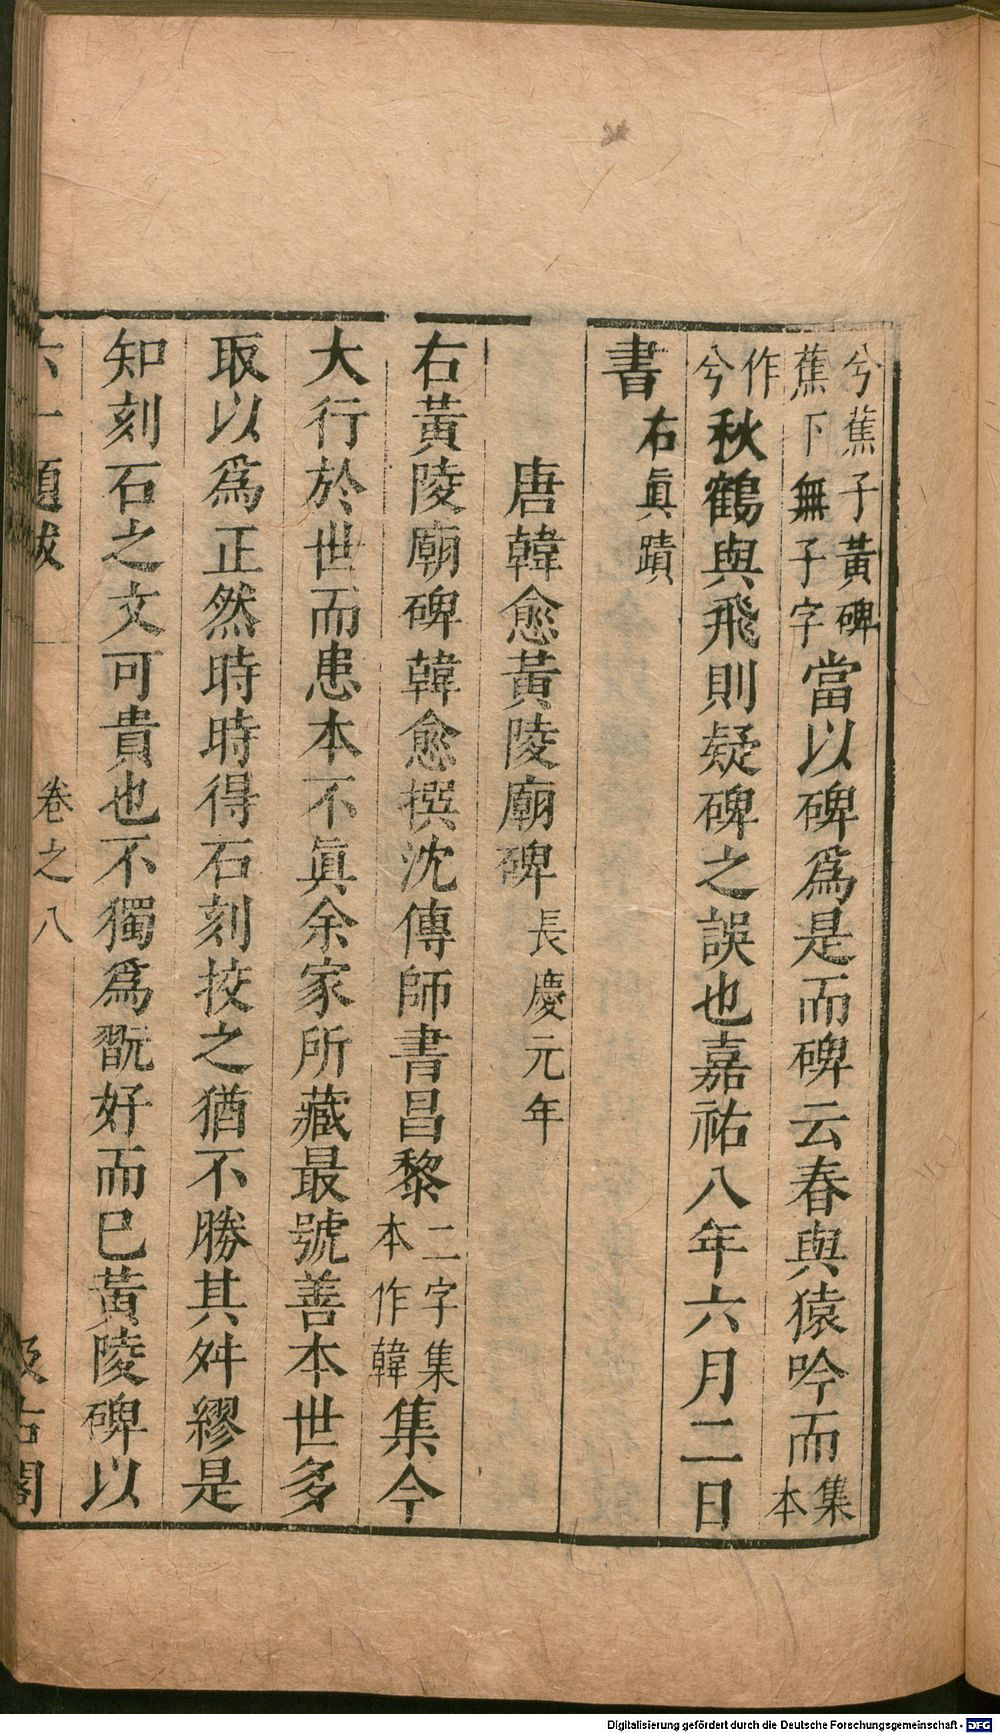 兮蕉子黃碑蕉下無子字當以碑爲是而碑云春與猿吟而集本
作兮秋鶴與飛則疑碑之誤也嘉祐八年六月二日
書右眞蹟
唐韓愈黃陵廟碑長慶元年
右黃陵廟碑韓愈撰沈傳師書昌黎二字集本作韓集今
大行於世而患本不眞余家所藏最號善本世多
取以爲正然時時得石刻挍之猶不勝其舛繆是
知刻石之文可貴也不獨爲翫好而已黃陵碑以
六一題跋 卷之八 汲古閣
Digitalisierung gefördert durch die Deutsche Forschungsgemeinschaft - DFG